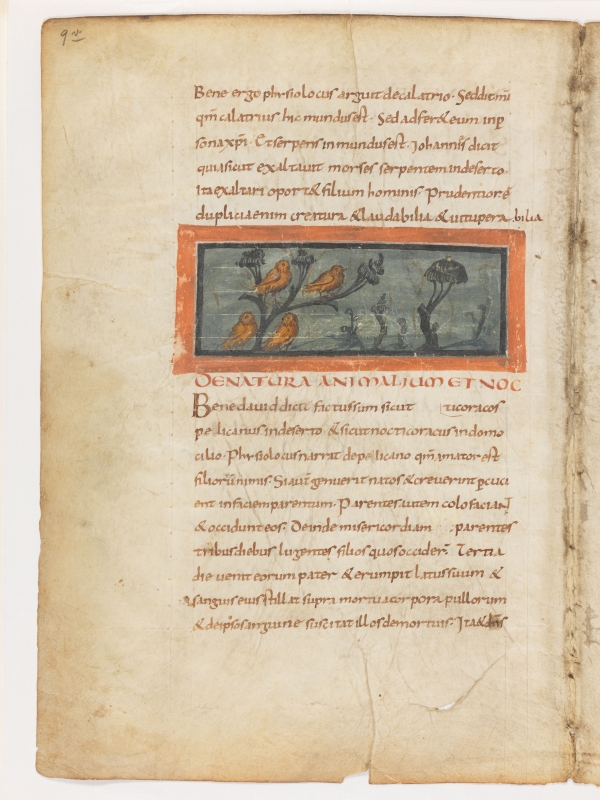 9v
Bene ergo phisiolocus arguit decalatrio. Sed dit m
qm calatrius hic mundus est. Sed adfer& eum inp
sona xpi. Et serpens inmundus est. Iohannis dicit
quia sicut exaltauit morses serpentem indeserto.
Ita exaltari oport& filium hominis. Prudentiore
duplacia enim creatura & laudabilia & uitupera bilia
DENATURA ANIMALIUM ET NOC
Bene dauid dicit factus sum sicut ticoracos
pelicanus indeserto & sicut nocticoracus indomo
cilio. Phisiolocus narrit de pelicano qm amator est
filiorum nimis. Si aut genuerit natos & creuerint pcuci
ent infaciem parentum. Parentes autem colofaciant
& occidunt eos. Deinde misericordiam parentes
tribus diebus lugentes filios quos occider. Tertia
die uenit eorum pater & erumpit latus suum &
sanguis eius stillat supra mortua corpora pullorum
& de ipso sanguine suscitat illos demortuis. Ita & dns